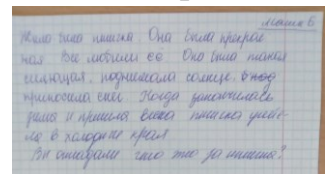 Жила была птичка Она была прекрас
ная. Все любили её. Она была такая
сияющая, поднимала солнце,
приносила снег Когда закончилась
зима и пришла весна птичка улете
ла в холодные края
Вы отгадали чего это за птичка?